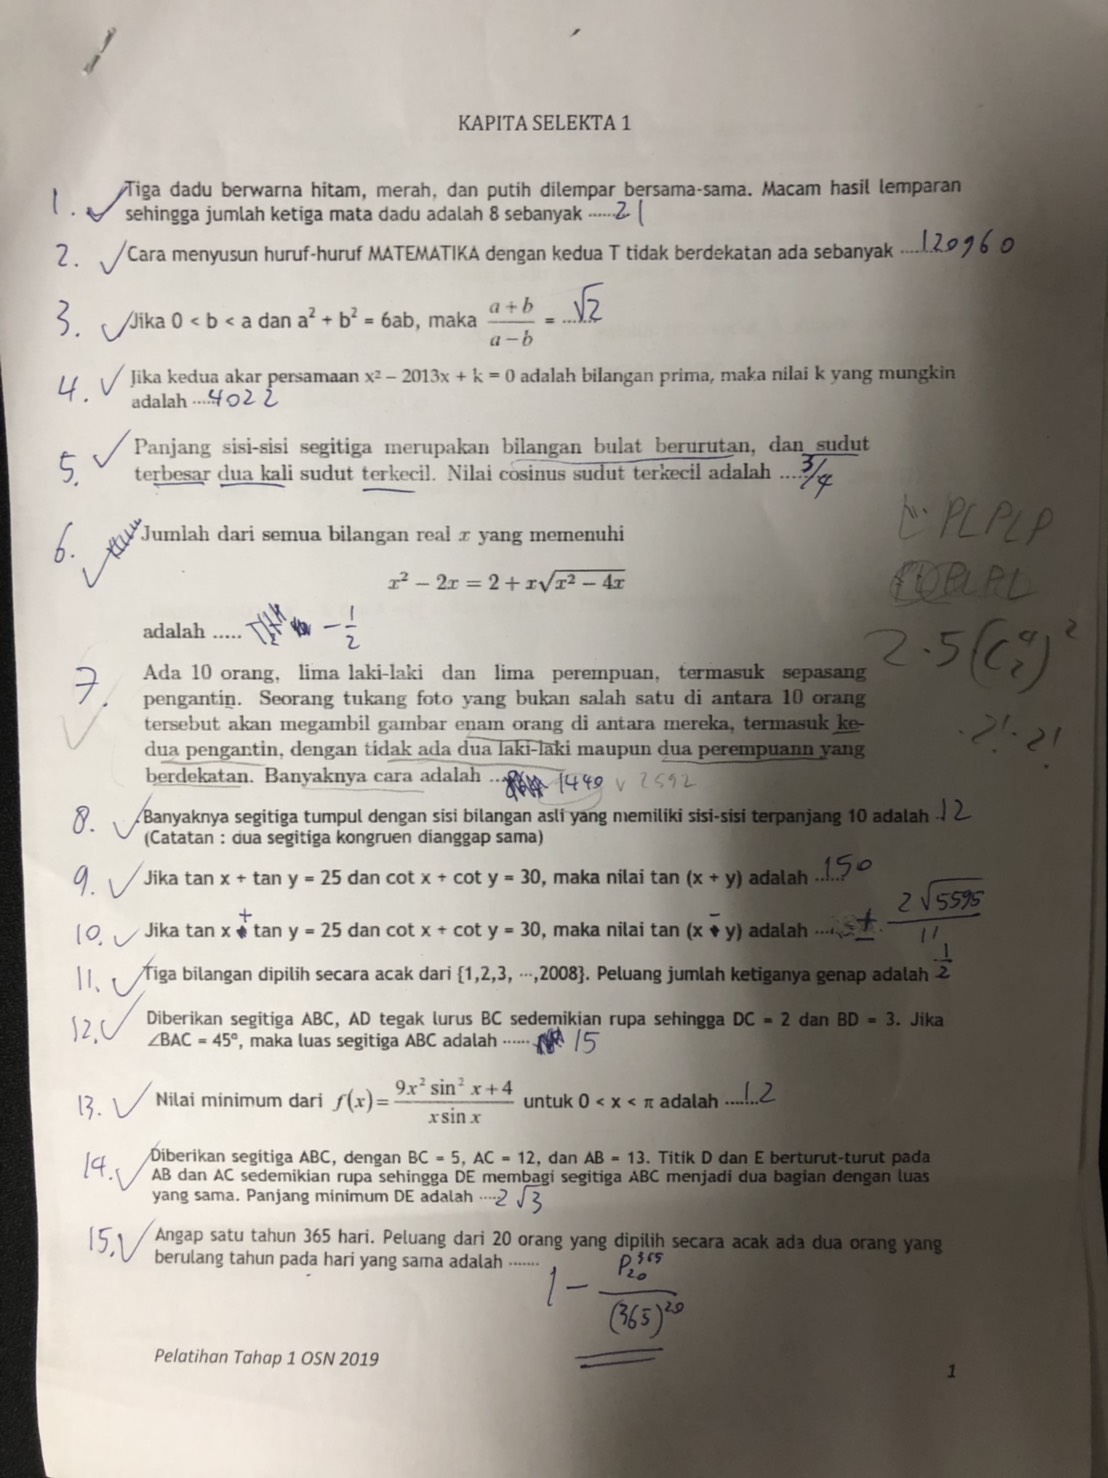 KAPITA SELEKTA 1
1. Tiga dadu berwarna hitam, merah, dan putih dilempar bersama-sama. Macam hasil lemparan
sehingga jumlah ketiga mata dadu adalah 8 sebanyak ......21
2. Cara menyusun huruf-huruf MATEMATIKA dengan kedua T tidak berdekatan ada sebanyak ....120960
3. Jika 0 < b < a dan a² + b² = 6ab, maka (a + b)/(a − b) = ...... √2
4. Jika kedua akar persamaan x² − 2013x + k = 0 adalah bilangan prima, maka nilai k yang mungkin
adalah ....4022
5. Panjang sisi-sisi segitiga merupakan bilangan bulat berurutan, dan sudut
terbesar dua kali sudut terkecil. Nilai cosinus sudut terkecil adalah ....3/4
6. Jumlah dari semua bilangan real x yang memenuhi
x² − 2x = 2 + x√(x² − 4x)
adalah ..... −1/2
PLPLP
2·5(C₂⁴)²
·2!·2!
7. Ada 10 orang, lima laki-laki dan lima perempuan, termasuk sepasang
pengantin. Seorang tukang foto yang bukan salah satu di antara 10 orang
tersebut akan megambil gambar enam orang di antara mereka, termasuk ke-
dua pengantin, dengan tidak ada dua laki-laki maupun dua perempuann yang
berdekatan. Banyaknya cara adalah ... 1440 v 2592
8. Banyaknya segitiga tumpul dengan sisi bilangan asli yang memiliki sisi-sisi terpanjang 10 adalah .12
(Catatan : dua segitiga kongruen dianggap sama)
9. Jika tan x + tan y = 25 dan cot x + cot y = 30, maka nilai tan (x + y) adalah ......150
10. Jika tan x + tan y = 25 dan cot x + cot y = 30, maka nilai tan (x − y) adalah .... ± 2√5595/11
11. Tiga bilangan dipilih secara acak dari {1,2,3, ···,2008}. Peluang jumlah ketiganya genap adalah 1/2
12. Diberikan segitiga ABC, AD tegak lurus BC sedemikian rupa sehingga DC = 2 dan BD = 3. Jika
∠BAC = 45°, maka luas segitiga ABC adalah ...... 15
13. Nilai minimum dari f(x)= (9x² sin² x + 4)/(x sin x) untuk 0 < x < π adalah ......12
14. Diberikan segitiga ABC, dengan BC = 5, AC = 12, dan AB = 13. Titik D dan E berturut-turut pada
AB dan AC sedemikian rupa sehingga DE membagi segitiga ABC menjadi dua bagian dengan luas
yang sama. Panjang minimum DE adalah ....2√3
15. Angap satu tahun 365 hari. Peluang dari 20 orang yang dipilih secara acak ada dua orang yang
berulang tahun pada hari yang sama adalah ....... 1 − P₂₀³⁶⁵/(365)²⁰
Pelatihan Tahap 1 OSN 2019
1